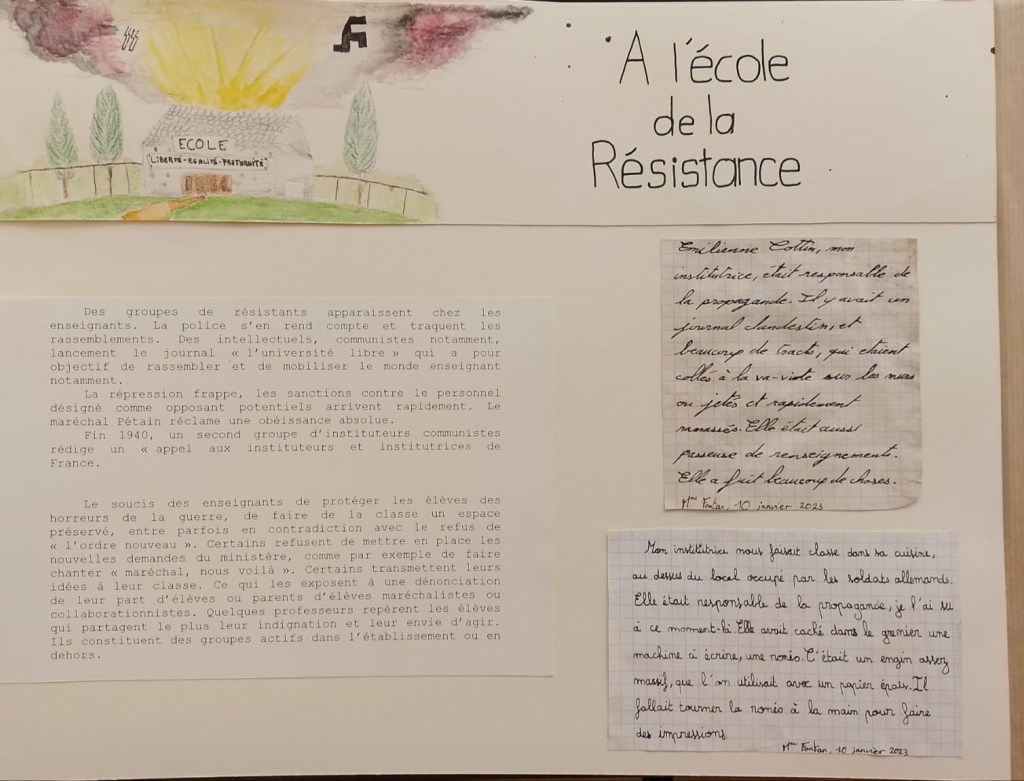 ECOLE
LIBERTÉ-EGALITÉ-FRATERNITÉ
A l'école
de la
Résistance
Des groupes de résistants apparaissent chez les
enseignants. La police s'en rend compte et traquent les
rassemblements. Des intellectuels, communistes notamment,
lancement le journal « l'université libre » qui a pour
objectif de rassembler et de mobiliser le monde enseignant
notamment.
La répression frappe, les sanctions contre le personnel
désigné comme opposant potentiels arrivent rapidement. Le
maréchal Pétain réclame une obéissance absolue.
Fin 1940, un second groupe d'instituteurs communistes
rédige un « appel aux instituteurs et institutrices de
France.
Le soucis des enseignants de protéger les élèves des
horreurs de la guerre, de faire de la classe un espace
préservé, entre parfois en contradiction avec le refus de
« l'ordre nouveau ». Certains refusent de mettre en place les
nouvelles demandes du ministère, comme par exemple de faire
chanter « maréchal, nous voilà ». Certains transmettent leurs
idées à leur classe. Ce qui les exposent à une dénonciation
de leur part d'élèves ou parents d'élèves maréchalistes ou
collaborationnistes. Quelques professeurs repèrent les élèves
qui partagent le plus leur indignation et leur envie d'agir.
Ils constituent des groupes actifs dans l'établissement ou en
dehors.
Emilienne Cottin, mon
institutrice, était responsable de
la propagande. Il y avait un
journal clandestin, et
beaucoup de tracts, qui étaient
collés à la va-vite sur les murs
ou jetés et rapidement
ramassés. Elle était aussi
passeuse de renseignements.
Elle a fait beaucoup de choses.
Mme Fontan, 10 janvier 2023
Mon institutrice nous faisait classe dans sa cuisine,
au dessus du local occupé par les soldats allemands.
Elle était responsable de la propagande, je l'ai su
à ce moment-là. Elle avait caché dans le grenier une
machine à écrire, une ronéo. C'était un engin assez
massif, que l'on utilisait avec un papier épais. Il
fallait tourner la ronéo à la main pour faire
des impressions.
Mme Fontan, 10 janvier 2023